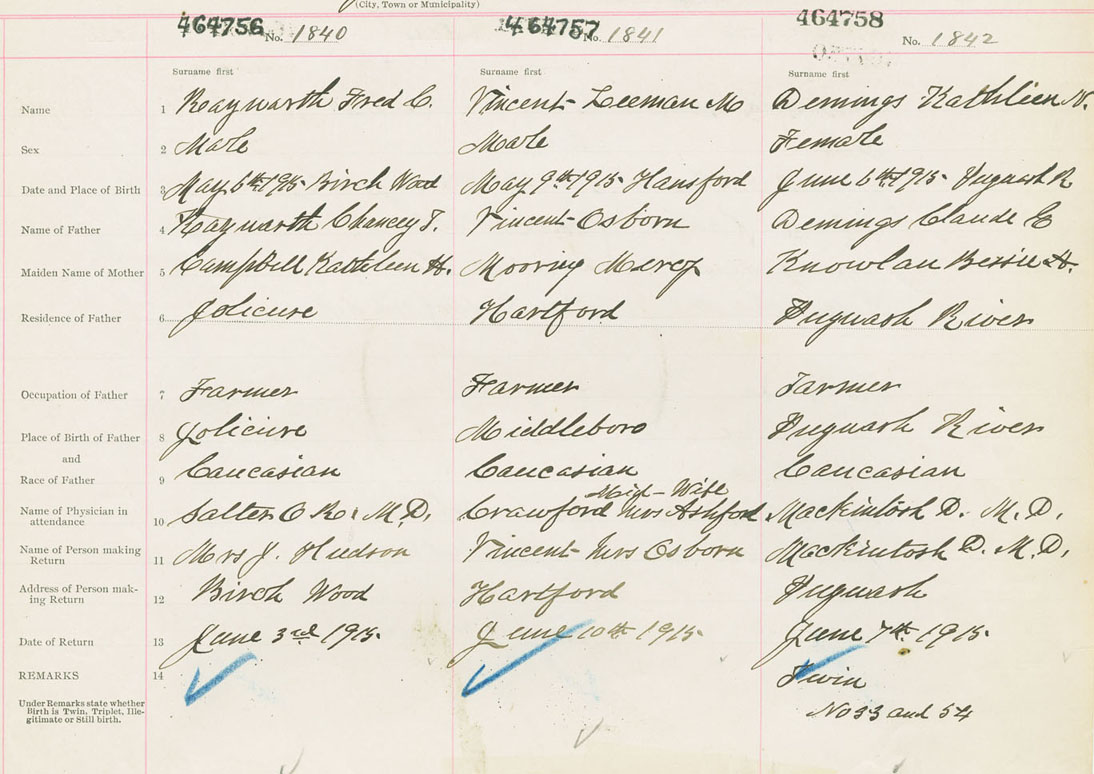 (City, Town or Municipality)
464756 No. 1840 464757 No. 1841 464758 No. 1842
Surname first Surname first Surname first
Name 1 Hayworth Fred C. Vincent Leeman M Demings Kathleen N.
Sex 2 Male Male Female
Date and Place of Birth 3 May 6th 1915 Birch Wood May 9th 1915 Hansford June 6th 1915 Pugwash R
Name of Father 4 Chancey T. Vincent Osborn Demings Claude
Maiden Name of Mother 5 Campbell Kathleen H. Mooring Knowlan Bessie
Residence of Father 6 Jolicure Hartford Pugwash River
Occupation of Father 7 Farmer Farmer Farmer
Place of Birth of Father 8 Jolicure Middleboro Pugwash River
and
Race of Father 9 Caucasian Caucasian Caucasian
Mid-Wife
Name of Physician in
attendance 10 Salter C R. M.D. Crawford Mrs Ashford Mackintosh D. M.D.
Name of Person making
Return 11 Mrs J. Hudson Vincent Mrs Osborn Mackintosh D. M.D.
Address of Person mak-
ing Return 12 Birch Wood Hartford Pugwash
Date of Return 13 June 3rd 1915. June 10th 1915. June 7th 1915.
REMARKS 14 Twin
Under Remarks state whether
Birth is Twin, Triplet, Ille-
gitimate or Still birth.
No 33 and 54